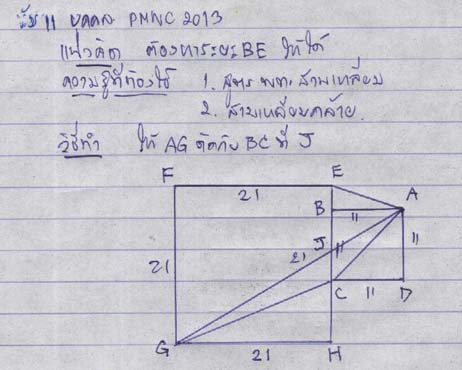 ข้อ 11 บุคคล PMWC 2013
แนวคิด ต้องหาระยะ BE ให้ได้
ความรู้ที่ต้องใช้ 1. สูตร พท. สามเหลี่ยม
2. สามเหลี่ยมคล้าย.
วิธีทำ ให้ AG ตัดกับ BC ที่ J
F E
21 A
B 11
J 11 11
21 21
C 11 D
G 21 H